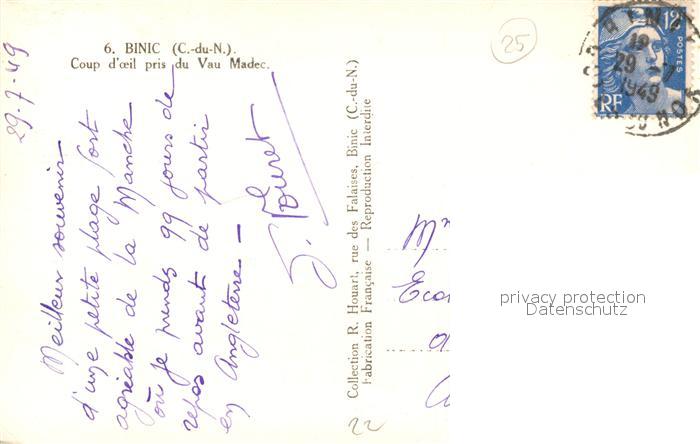 6. BINIC (C.-du-N.).
Coup d'œil pris du Vau Madec.
29-7-49
Meilleur souvenir
d'une petite plage fort
agréable de la Manche
où je prends 99 jours de
repos avant de partir
en Angleterre –
Collection R. Houart, rue des Falaises, Binic (C.-du-N.)
Fabrication Française — Reproduction Interdite
25
12F
POSTES
RF
BINIC
19
29 -7
1949
NORD
privacy protection
Datenschutz
22